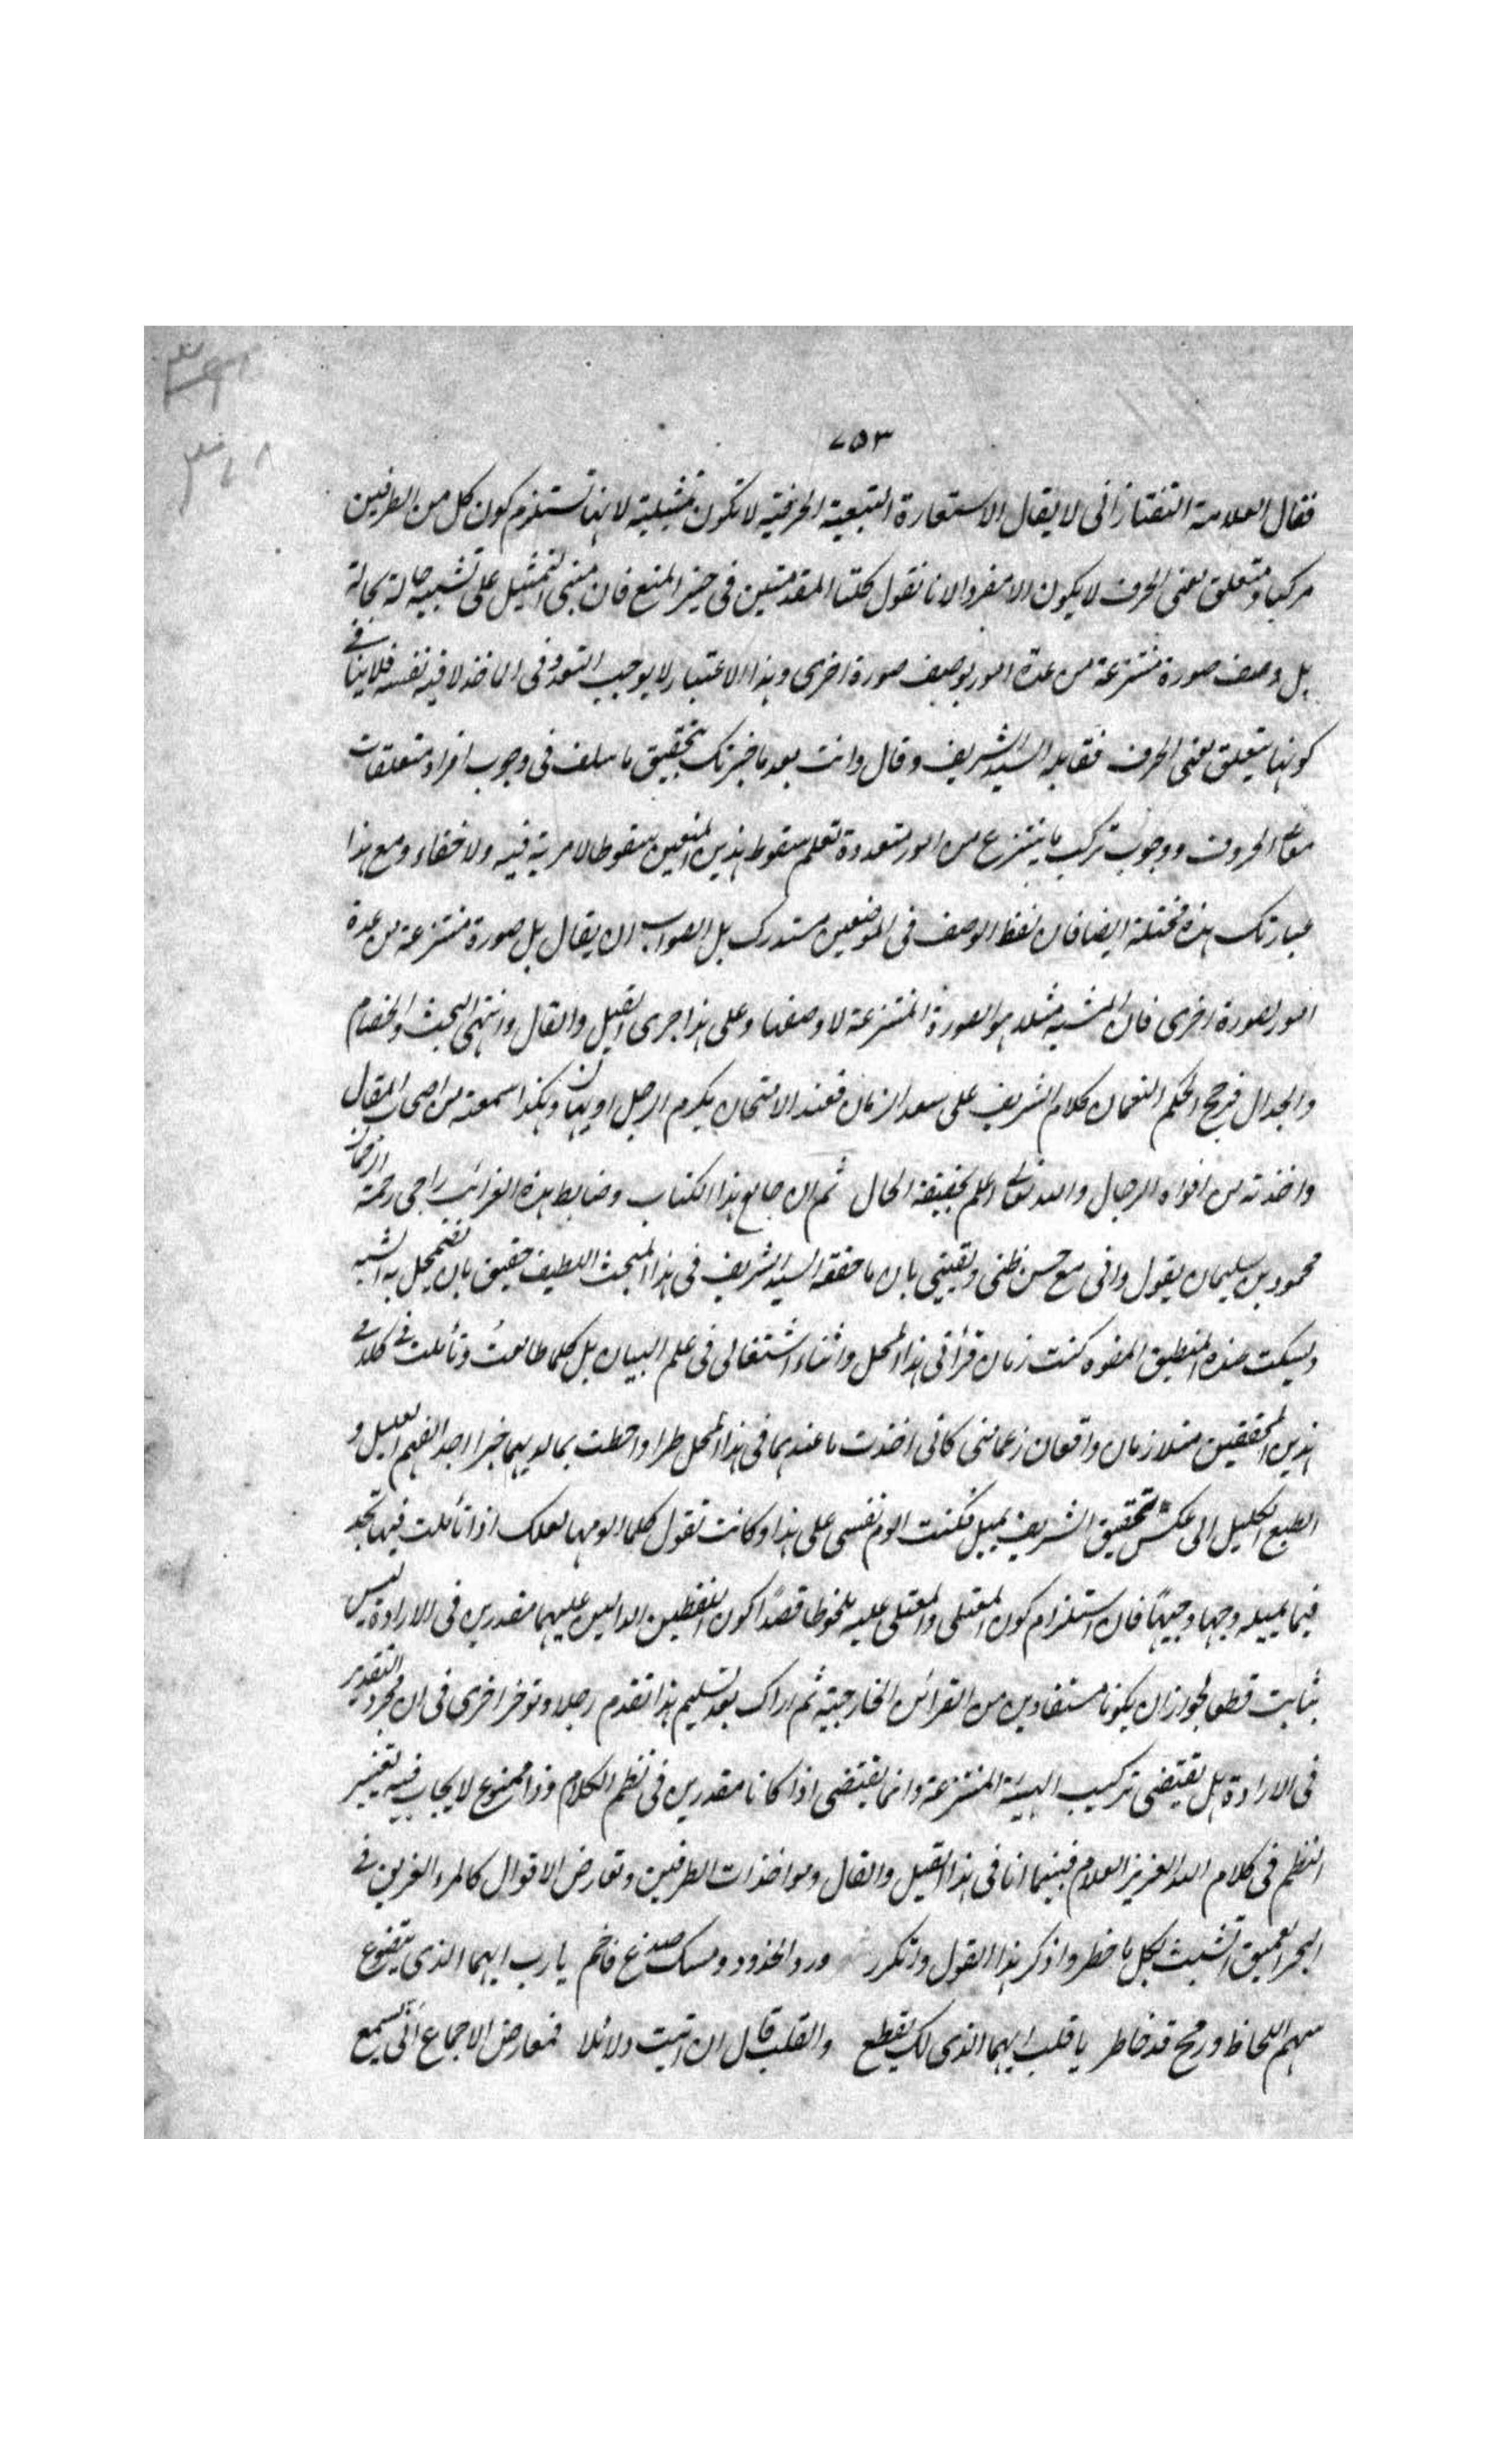 ٧٥٣
فقال العلامة التفتازانى لا يقال الاستعارة التبعية الحرفية لا تكون تمثيلية لانها تستلزم كون كل من الطرفين
مركبا ومتعلق معنى الحرف لا يكون الا مفردا لانا نقول كلتا المقدمتين فى حيز المنع فان مبنى التمثيل على تشبيه حالة بحالة
بل وصف صورة منتزعة من عدة امور بوصف صورة اخرى وهذا الاعتبار لا يوجب التعدد فى الماخذ لا فيه نفسه فلا ينافى
كونها متعلق معنى الحرف فقابله السيد الشريف وقال وانت بعد ما خبرتك بتحقيق ما سلف فى وجوب افراد متعلقات
معانى الحروف ووجوب تركب ما ينتزع من امور متعددة تعلم سقوط هذين المنعين سقوطا لا مرية فيه ولا خفاء ومع هذا
عبارتك هذه مختلة ايضا فان لفظ الوصف فى الموضعين مستدرك بل الصواب ان يقال بل صورة منتزعة من عدة
امور بصورة اخرى فان المشبه مثلا هو الصورة المنتزعة لا وصفها وعلى هذا جرى القيل والقال وانتهى البحث والخصام
والجدال فرجح الحكم النعمان كلام الشريف على سعد الزمان فعند الامتحان يكرم الرجل او يهان وهكذا سمعته من اصحاب المقال
واخذته من افواه الرجال والله تعالى اعلم بحقيقة الحال ثم ان جامع هذا الكتاب وضابط هذه الغرائب راجى رحمة الرحمان
محمود بن سليمان يقول وانى مع حسن ظنى ويقينى بان ما حققه السيد الشريف فى هذا المبحث اللطيف حقيق بان يضمحل به الشبه
ويسكت عنده المنطيق المفوه كنت زمان قرأتى هذا المحل واثناء اشتغالى فى علم البيان بل كلما طالعت وتأملت فى كلامى
هذين المحققين مثلا زمان واقعان زعما منى كانى اخذت ما عندهما فى هذا المحل طرا واحطت بما لديهما خبرا اجد الفهم العليل و
الطبع الكليل الى عكس تحقيق الشريف يميل فكنت الوم نفسى على هذا وكانت تقول كلما الومها لعلك اذا تأملت فيها تجد
فيما يميله وجها وجيها فان استلزام كون المعتلى والمعتلى عليه ملحوظا قصدًا كون اللفظين الدالين عليهما مقدرين فى الارادة ليس
بثابت قطعا لجواز ان يكونا مستفادين من القرائن الخارجية ثم اراك بعد تسليم هذا تقدم رجلا وتوخر اخرى فى ان مجرد التقدير
فى الارادة هل يقتضى تركيب الهيئة المنتزعة وانما يقتضى اذا كانا مقدرين فى نظم الكلام وذا ممنوع لايجابه فيه تغيير
النظم فى كلام الله العزيز العلام فبينما انا فى هذا القيل والقال ومواخذات الطرفين وتعارض الاقوال كالمرء الغريق فى
البحر العميق اتشبث بكل ما خطر واذكر هذا القول واتكرر ورد الخدود ومسك صدغ فاحم يا رب ايهما الذى يتضوع
سهم اللحاظ ورمح قد خاطر يا قلب ايهما الذى لك يقطع والقلب قال ان اتيت دلائلا فمعارض الاجماع انى يسمع